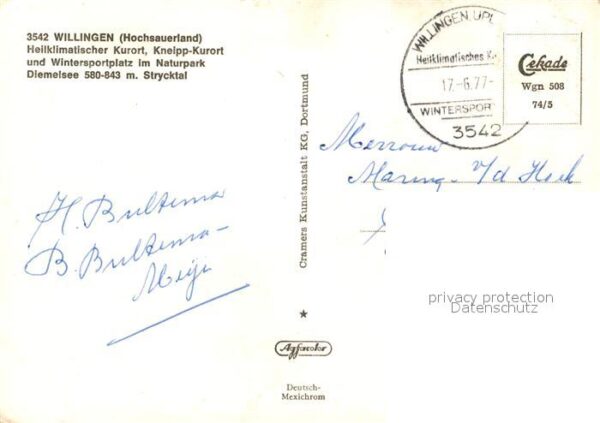 3542 WILLINGEN (Hochsauerland)
Heilklimatischer Kurort, Kneipp-Kurort
und Wintersportplatz im Naturpark
Diemelsee 580-843 m. Strycktal
H. Bultema
B. Bultema-
Meije
Cramers Kunstanstalt KG, Dortmund
★
Agfacolor
Deutsch-
Mexichrom
WILLINGEN, UPL
Heilklimatisches K
17.-6.77-
WINTERSPOR
3542
Cekade
Wgn 508
74/5
Mevrouw
Maring- v/d Hoek
privacy protection
Datenschutz